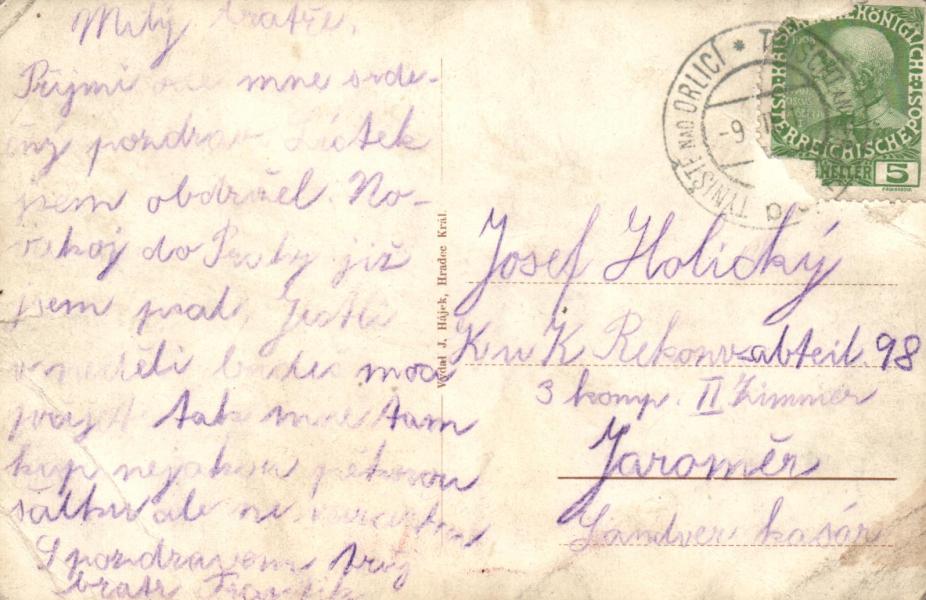 Milý bratře,
Přijmi ode mne srde-
čný pozdrav. Lístek
jsem obdržel. No-
do Prahy již
jsem psal. Jestli
v neděli budeš moci
tak mně tam
kup nějakou pěknou
šálku ale ne
S pozdravem tvůj
bratr František
Vydal J. Hájek, Hradec Král.
TÝNIŠTĚ NAD ORLICÍ * TINISCHT AN
-9
a
KAISERLICHE KÖNIGLICHE
ÖSTERREICHISCHE POST
HELLER 5
Josef Holický
K u K Rekonv-abteil. 98
3 komp. II Zimmer
Jaroměr
Landver kasár